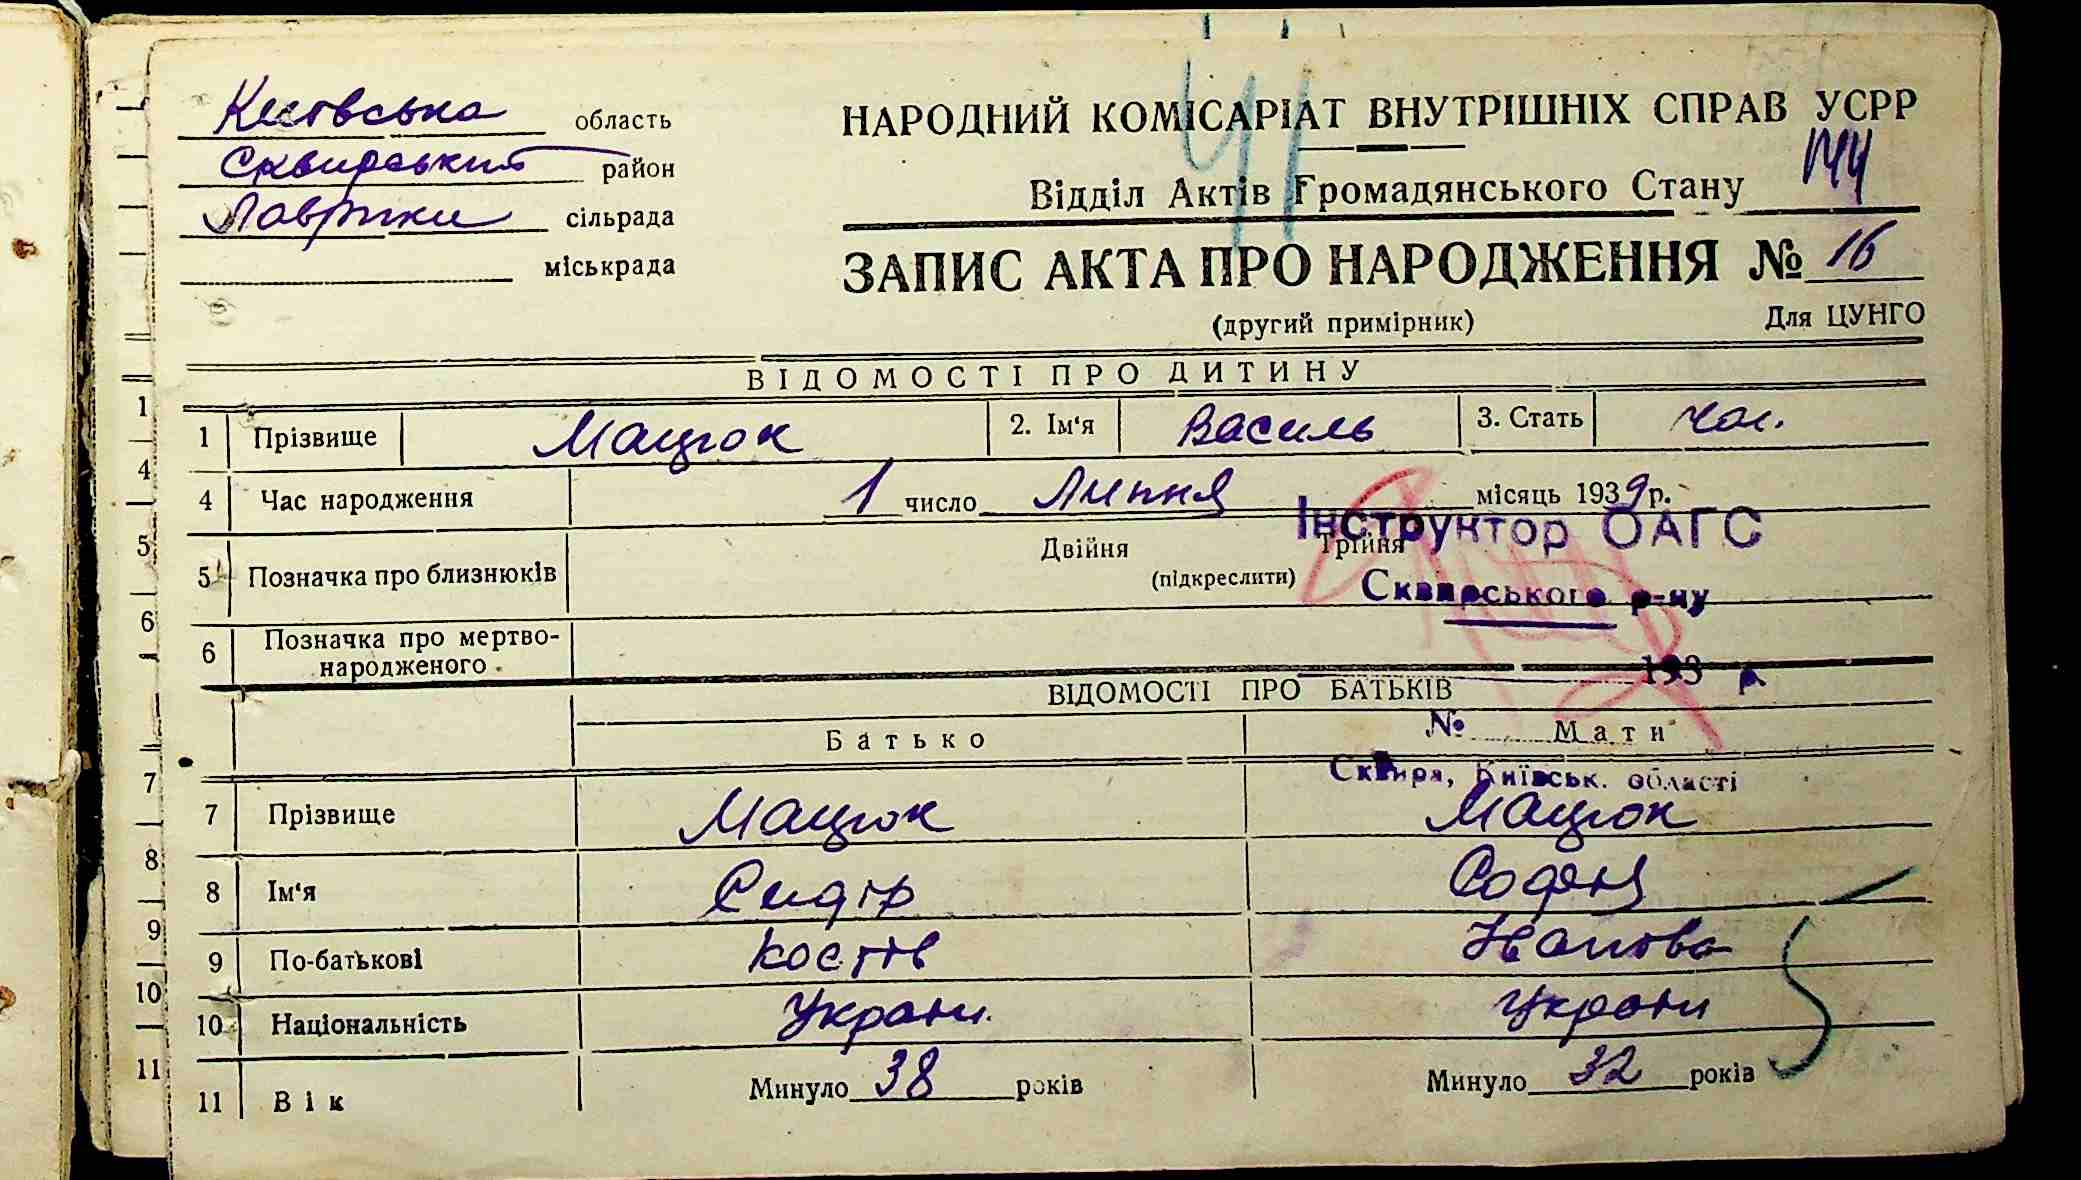 Київська область
Сквирський район
Лаврики сільрада
міськрада
НАРОДНИЙ КОМІСАРІАТ ВНУТРІШНІХ СПРАВ УСРР
Відділ Актів Громадянського Стану
144
ЗАПИС АКТА ПРО НАРОДЖЕННЯ № 16
(другий примірник) Для ЦУНГО
ВІДОМОСТІ ПРО ДИТИНУ
1 Прізвище Мацюк 2. Ім'я Василь 3. Стать чол.
4 Час народження 1 число Липня місяць 1939 р.
Інструктор ОАГС
5 Позначка про близнюків Двійня Трійня
(підкреслити)
Сквирського р-ну
6 Позначка про мертво-
народженого
193 р.
ВІДОМОСТІ ПРО БАТЬКІВ
Батько № Мати
Сквира, Київськ. області
7 Прізвище Мацюк Мацюк
8 Ім'я Сидір
9 По-батькові Костів Іванова
10 Національність Україн. Україн
11 Вік Минуло 38 років Минуло 32 років
1
4
5
6
7
8
9
10
11